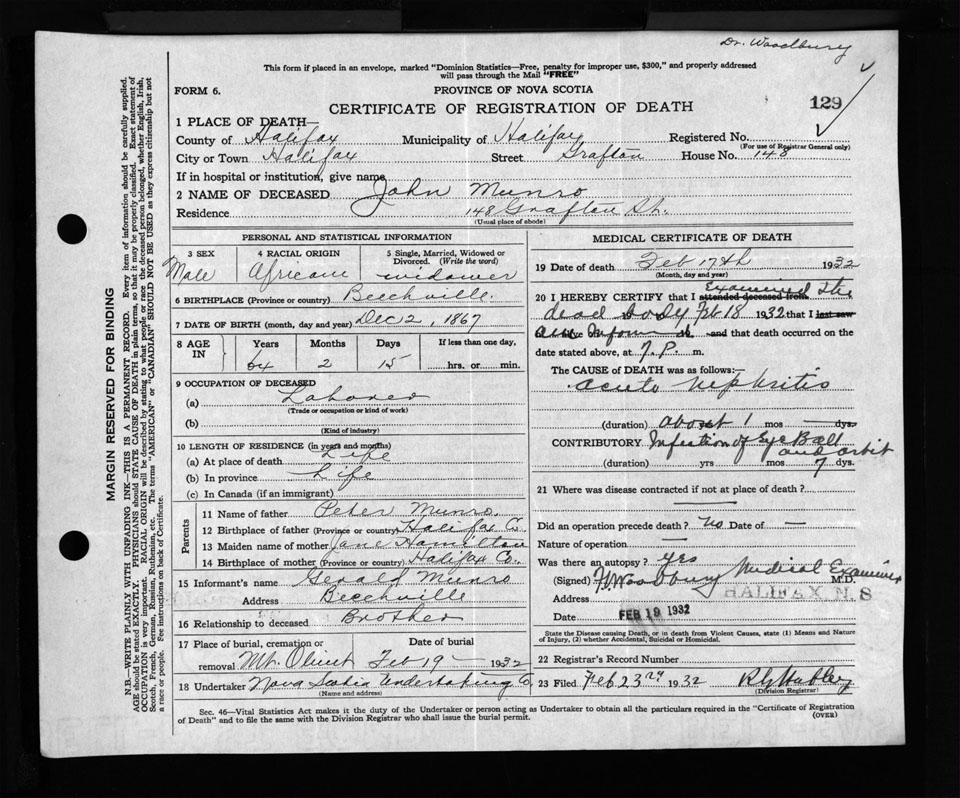 Dr. Woodbury
This form if placed in an envelope, marked "Dominion Statistics—Free, penalty for improper use, $300," and properly addressed
will pass through the Mail "FREE"
FORM 6.
PROVINCE OF NOVA SCOTIA
CERTIFICATE OF REGISTRATION OF DEATH
129
1 PLACE OF DEATH—
County of Halifax Municipality of Halifax Registered No.
(For use of Registrar General only)
City or Town Halifax Street Grafton House No. 148
If in hospital or institution, give name
2 NAME OF DECEASED John Munro
Residence 148 Grafton St.
(Usual place of abode)
PERSONAL AND STATISTICAL INFORMATION
3 SEX 4 RACIAL ORIGIN 5 Single, Married, Widowed or
Divorced. (Write the word)
Male African widower
6 BIRTHPLACE (Province or country) Beechville.
7 DATE OF BIRTH (month, day and year) Dec 2, 1867
8 AGE IN Years Months Days If less than one day,
64 2 15 hrs. or min.
9 OCCUPATION OF DECEASED
(a) Laborer
(Trade or occupation or kind of work)
(b)
(Kind of industry)
10 LENGTH OF RESIDENCE (in years and months)
(a) At place of death Life
(b) In province Life
(c) In Canada (if an immigrant)
Parents
11 Name of father Peter Munro.
12 Birthplace of father (Province or country) Halifax Co.
13 Maiden name of mother Jane Hamilton
14 Birthplace of mother (Province or country) Halifax Co.,
15 Informant's name Gerald Munro
Address Beechville
16 Relationship to deceased Brother
17 Place of burial, cremation or Date of burial
removal Mt. Olivet Feb 19 - 1932
18 Undertaker Nova Scotia Undertaking Co
(Name and address)
MEDICAL CERTIFICATE OF DEATH
19 Date of death Feb 17th 1932
(Month, day and year)
Examined the
20 I HEREBY CERTIFY that I attended deceased from
dead body Feb 18 1932 that I last saw
and that death occurred on the
date stated above, at 7. P. m.
The CAUSE of DEATH was as follows:—
acute nephritis
(duration) about 1 mos — dys.
CONTRIBUTORY Infection of Eye Ball
and orbit
(duration) yrs mos 7 dys.
21 Where was disease contracted if not at place of death?
Did an operation precede death? No Date of —
Nature of operation —
Was there an autopsy? yes
(Signed) Woodbury Medical Examiner M.D.
Address HALIFAX N.S
Date FEB 19 1932
State the Disease causing Death, or in death from Violent Causes, state (1) Means and Nature
of Injury, (2) whether Accidental, Suicidal or Homicidal.
22 Registrar's Record Number
23 Filed Feb 23rd 1932
(Division Registrar)
Sec. 46—Vital Statistics Act makes it the duty of the Undertaker or person acting as Undertaker to obtain all the particulars required in the "Certificate of Registration
of Death" and to file the same with the Division Registrar who shall issue the burial permit.
(OVER)
MARGIN RESERVED FOR BINDING
N.B.—WRITE PLAINLY WITH UNFADING INK—THIS IS A PERMANENT RECORD. Every item of information should be carefully supplied.
AGE should be stated EXACTLY. PHYSICIANS should STATE CAUSE OF DEATH in plain terms, so that it may be properly classified. Exact statement of
OCCUPATION is very important. RACIAL ORIGIN will be described by stating to what people or race the deceased person belonged, whether English, Irish,
Scotch, French, German, Russian, Ruthenian, etc. The terms "AMERICAN" or "CANADIAN" SHOULD NOT BE USED as they express citizenship but not
a race or people. See instructions on back of Certificate.